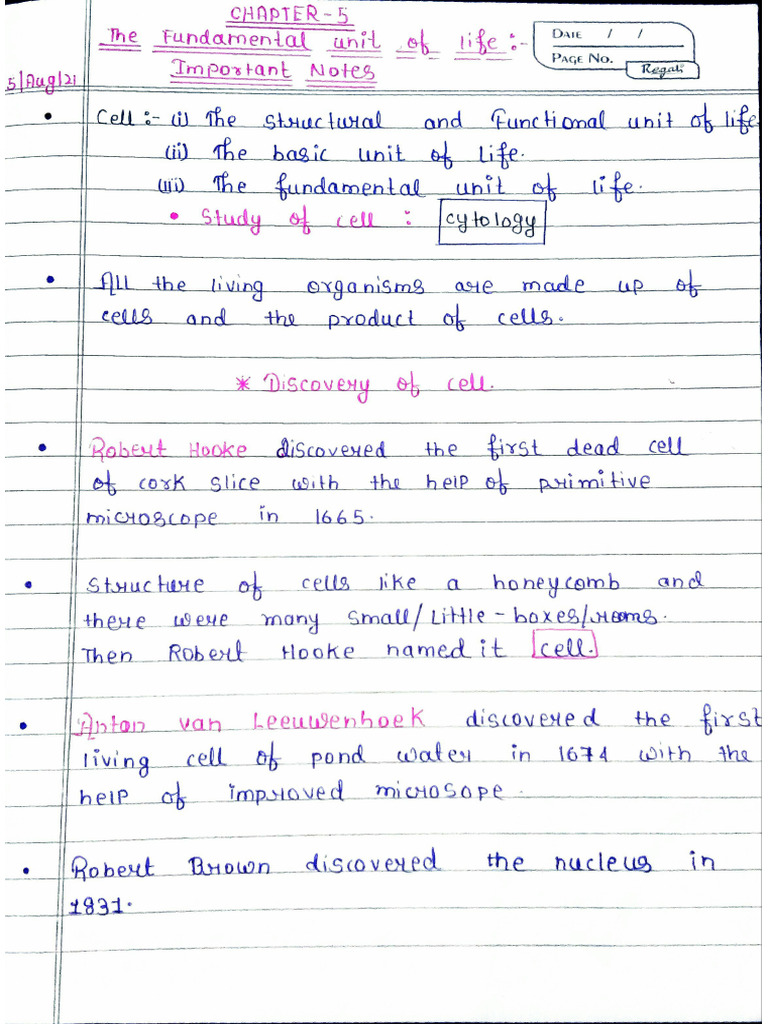 CHAPTER-5
The Fundamental unit of life:-
Important Notes
DATE / /
PAGE No.
Regal
5/Aug/21
• Cell :- (i) The structural and Functional unit of life
(ii) The basic unit of life.
(iii) The fundamental unit of life.
• Study of cell : cytology
• All the living organisms are made up of
cells and the product of cells.
* Discovery of cell.
• Robert Hooke discovered the first dead cell
of cork slice with the help of primitive
microscope in 1665.
• structure of cells like a honeycomb and
there were many small/little-boxes/rooms.
Then Robert Hooke named it cell.
• Anton van Leeuwenhoek discovered the first
living cell of pond water in 1674 with the
help of improved microsope.
• Robert Brown discovered the nucleus in
1831.